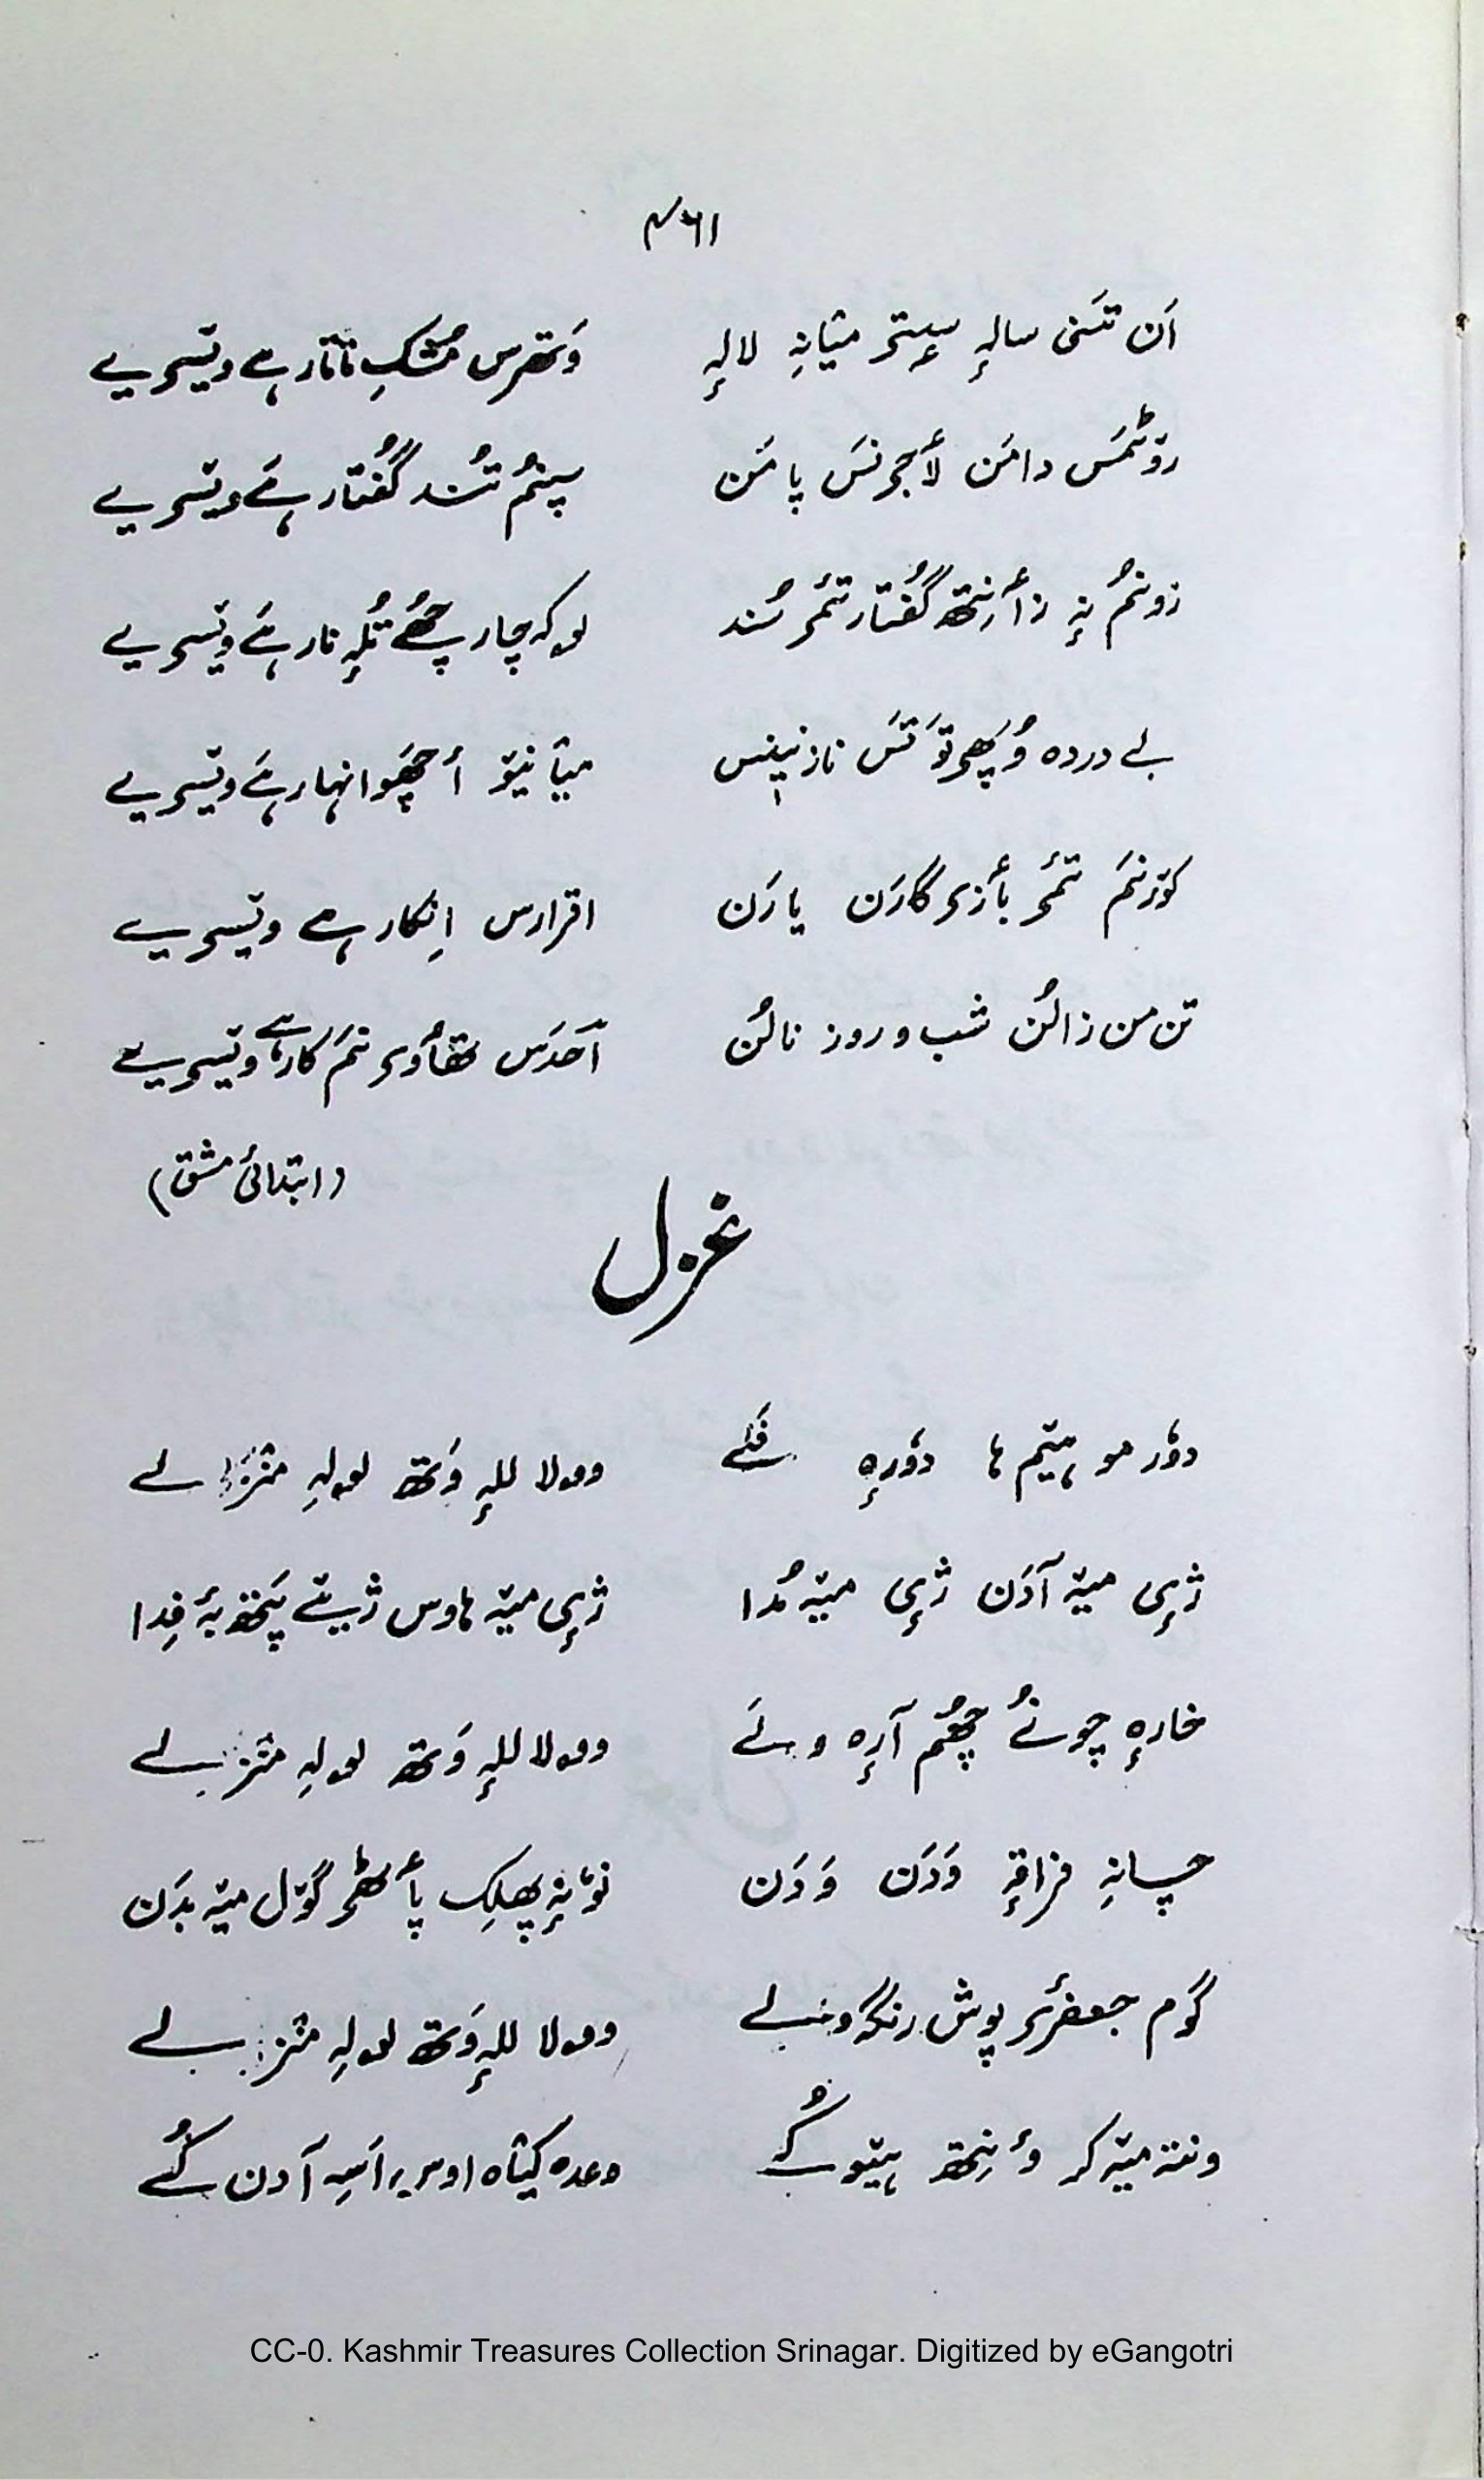 ۴۶۱
اَن تَسٕنی سالہٕ سیٖتؠ میٛانہِ لالہٕ وَتھرس مُشکِ تاتار ہے ویٚسیے
روٚٹمَس دامَن لأجؠنَس پامَن پیٚنمُ تُند گُفتار ہےَ ویٚسیے
زونمُ نہٕ زأنِتھ گُفتار تٔمؠ سُند لوکہ چار چھُے تُلہٕ نار ہےَ ویٚسیے
بے دردہ وُچھؠتوَ تَس نازنیٖنس میٛانیٚو أچھَو انہار ہےَ ویٚسیے
کوٚرنمَ تٔمؠ بأزی گارَن یارَن اقرارس اِنکار ہے ویٚسیے
تن من زالُن شب و روز نالُن آحدَس تھأوی نمَ کار ہے ویٚسیے
(ابتدائی مشق)
غزل
دوٗر مو ہیٚتم ہا دوٗرہٕ وومولا للہٕ وَتھ لولہِ
ژٕی میٚہ آدَن ژٕی میٚہ مُدا ژٕی میٚہ ہاوس ژیٚے پَتھ بۂ فِدا
خارہٕ چونُے چھُم آرہٕ وومولا للہٕ وَتھ لولہِ
چانہِ فراقہٕ وَدَن وَدَن پھلِک پأٹھؠ گوٚل میٚہ بدَن
گوٚم جعفرؠ پوش رنگہ وومولا للہٕ وَتھ لولہِ
ونتہ میٚہ کر وٲنِتھ ہیٚیو کُے وعدہ کیٛاہ اوس اَسہِ آدن کُے
CC-0. Kashmir Treasures Collection Srinagar. Digitized by eGangotri